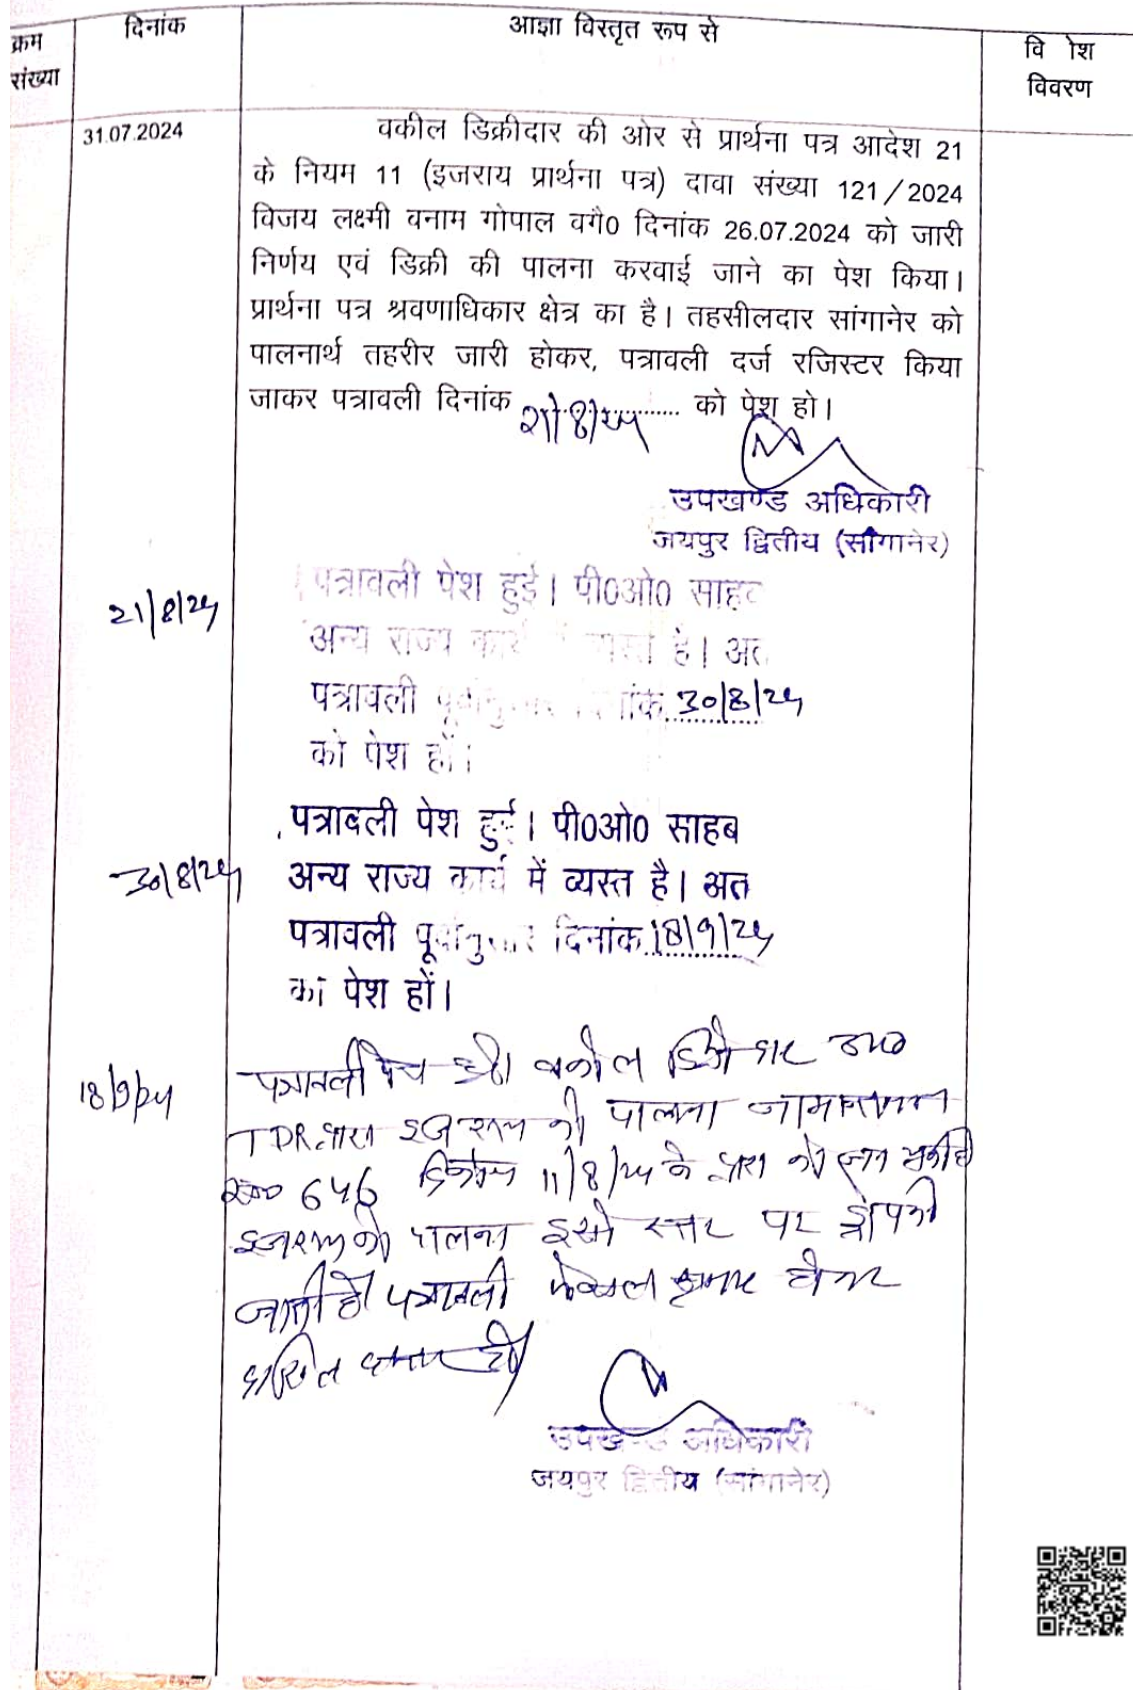 क्रम संख्या
दिनांक
आज्ञा विस्तृत रूप से
वि ोश विवरण
31.07.2024
वकील डिक्रीदार की ओर से प्रार्थना पत्र आदेश 21
के नियम 11 (इजराय प्रार्थना पत्र) दावा संख्या 121/2024
विजय लक्ष्मी वनाम गोपाल वगै0 दिनांक 26.07.2024 को जारी
निर्णय एवं डिक्री की पालना करवाई जाने का पेश किया।
प्रार्थना पत्र श्रवणाधिकार क्षेत्र का है। तहसीलदार सांगानेर को
पालनार्थ तहरीर जारी होकर, पत्रावली दर्ज रजिस्टर किया
जाकर पत्रावली दिनांक 21/8/24 को पेश हो।
उपखण्ड अधिकारी
जयपुर द्वितीय (सांगानेर)
21/8/24
पत्रावली पेश हुई। पी0ओ0 साहब
अन्य राज्य कार्य व्यस्त है। अत
पत्रावली पूर्वानुसार दिनांक 30/8/24
को पेश हों।
30/8/24
पत्रावली पेश हुई। पी0ओ0 साहब
अन्य राज्य कार्य में व्यस्त है। अत
पत्रावली पूर्वानुसार दिनांक 18/9/24
को पेश हों।
18/9/24
पत्रावली पेश हुई। वकील डिक्रीदार उप0
TDR द्वारा इजराय की पालना नामान्तकरण
646 दिनांक 11/8/24 के द्वारा की जा चुकी है
इजराय की पालना इसी स्तर पर ड्रॉप की
जाती है। पत्रावली फैसल शुमार होकर
दाखिल दफ्तर हो।
उपखण्ड अधिकारी
जयपुर द्वितीय (सांगानेर)